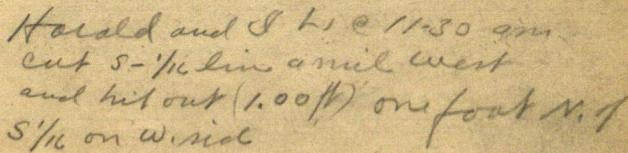 Harald and I @ 11-30 am
cut S-1/16 line a mile west
and hit out (1.00 ft) one foot N. of
S 1/16 on W. side